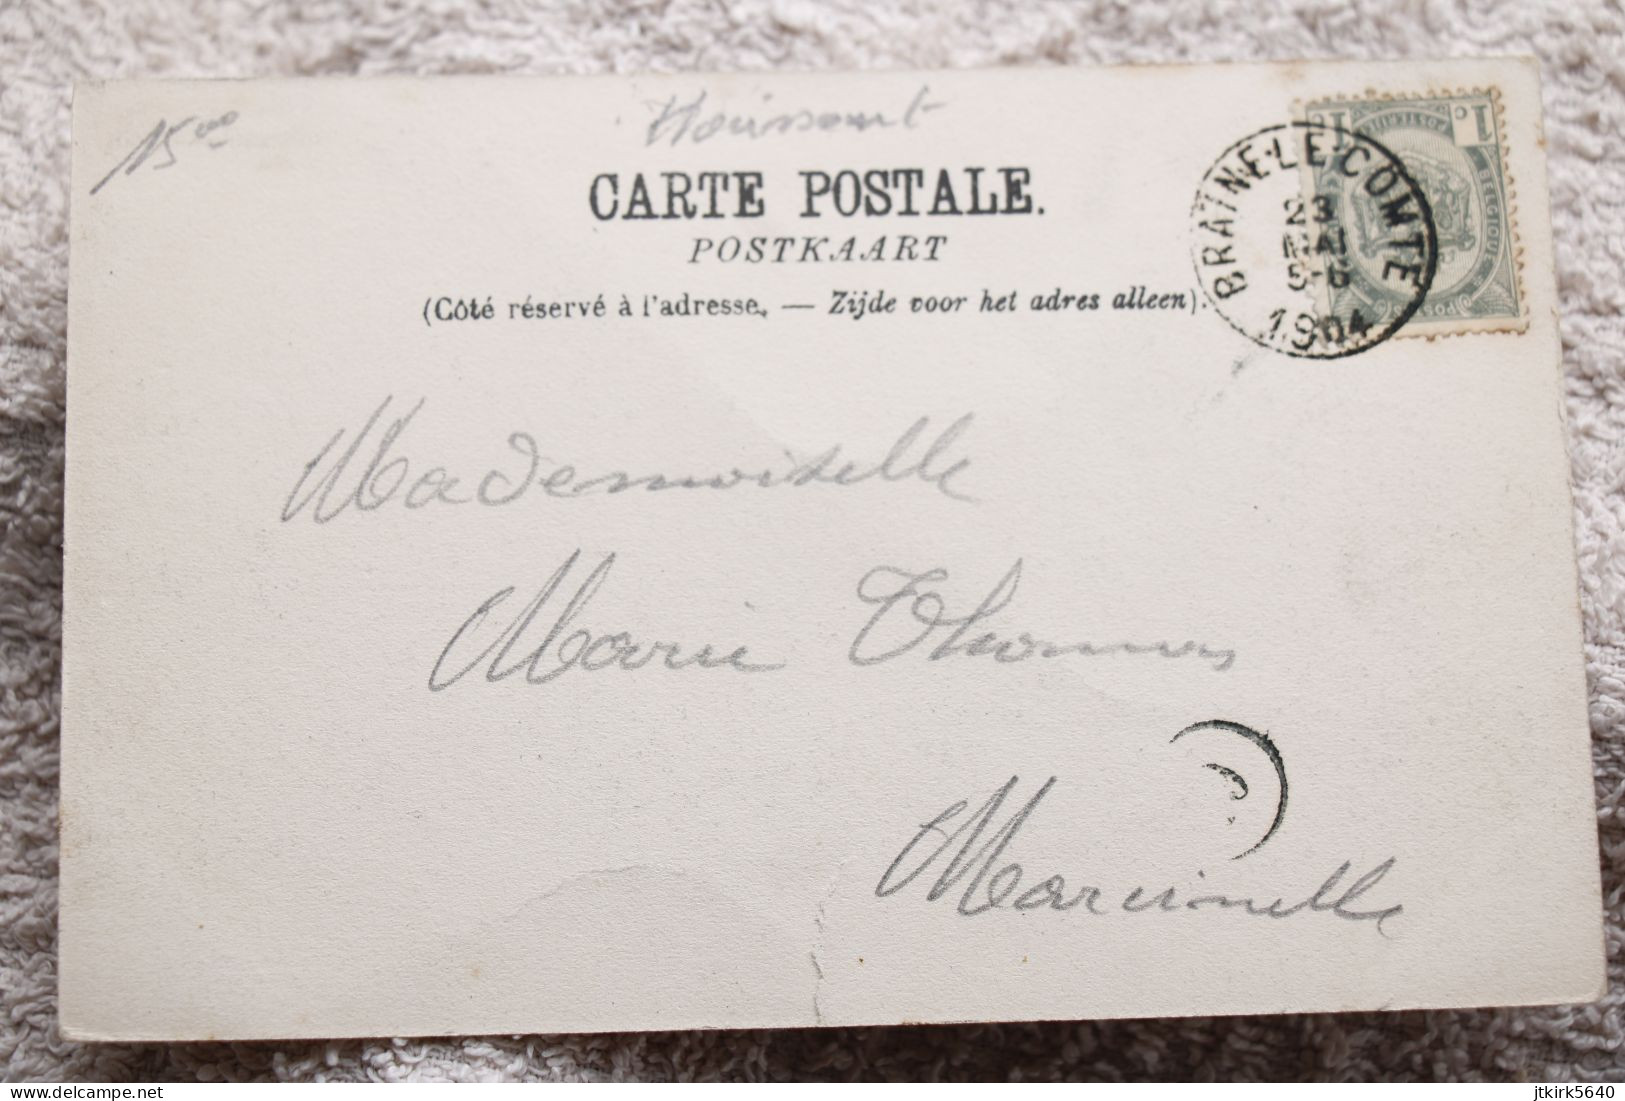 15 00
CARTE POSTALE.
POSTKAART
(Côté réservé à l'adresse. — Zijde voor het adres alleen).
BRAINE-LE-COMTE
23
MAI
1904
1c 1c
POSTERIJEN
BELGIQUE
POSTES
Mademoiselle
Marie Thomas
Marcinelle
delcampe.net
jtkirk5640